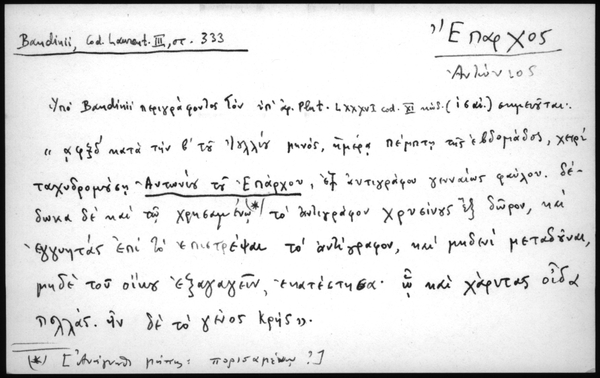 Bandinii, Cod. Laurent. III, στ. 333
Ἔπαρχος
Ἀντώνιος
Ὑπὸ Bandinii περιγράφοντος τὸν ὑπ' ἀρ. Plut. LXXXVI cod. XI κώδ. ( ) σημειοῦται:
« ͵αφξδ´ κατὰ τὴν β´ τοῦ Ἰουλλίου μηνός, ἡμέρᾳ πέμπτῃ τῆς ἑβδομάδος, χειρὶ
ταχυδρομούσῃ Ἀντωνίου τοῦ Ἐπάρχου, ἐξ ἀντιγράφου γενναίως φαύλου. δέ-
δωκα δὲ καὶ τῷ χρησαμένῳ (*) τὸ ἀντίγραφον χρυσίνους ἓξ δῶρον, καὶ
ἐγγυητὰς ἐπὶ τὸ ἐπιστρέψαι τὸ ἀντίγραφον, καὶ μηδενὶ μεταδοῦναι,
μηδὲ τοῦ οἴκου ἐξαγαγεῖν, ἐκατέστησα· ᾧ καὶ χάριτας οἶδα
πολλάς. ἦν δὲ τὸ γένος Κρής».
(*) [Ἀνάγνωθι μήπως: πορισαμένῳ ?]